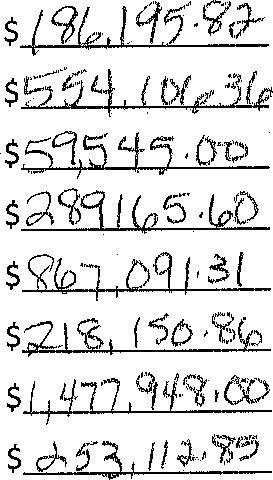 $ 186,195.82
$ 554,106.36
$ 59,545.00
$ 289165.60
$ 867,091.31
$ 218,150.86
$ 1,477,948.00
$ 253,112.85